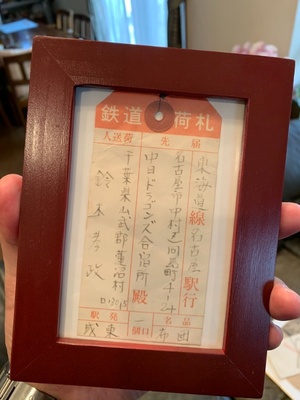 鉄道荷札
届先
荷送人
東海道線名古屋駅行
名古屋市中村区
中日ドラゴンズ合宿所殿
千葉県山武郡蓮沼村
鈴木孝政
品名
布団
個口
一
発駅
成東